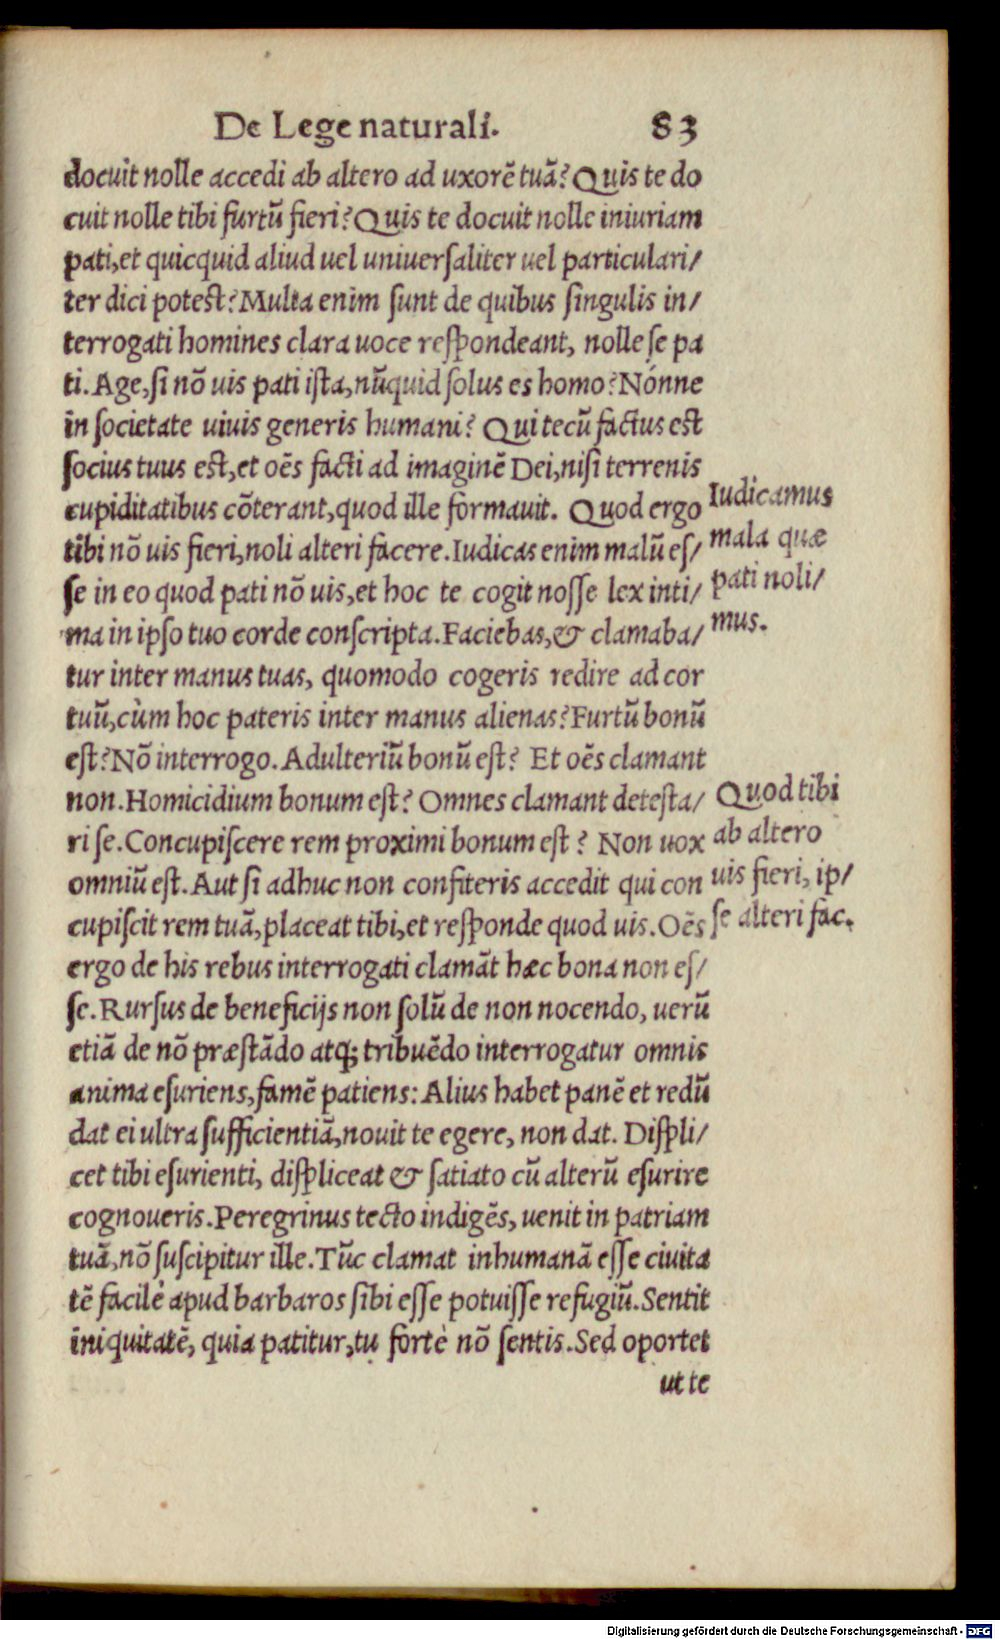 De Lege naturali. 83
docuit nolle accedi ab altero ad uxorē tuā? Quis te do
cuit nolle tibi furtū fieri? Quis te docuit nolle iniuriam
pati, et quicquid aliud uel uniuerſaliter uel particulari/
ter dici poteſt? Multa enim ſunt de quibus ſingulis in/
terrogati homines clara uoce reſpondeant, nolle ſe pa
ti. Age, ſi nō uis pati iſta, nūquid ſolus es homo? Nónne
in ſocietate uiuis generis humani? Qui tecū factus eſt
ſocius tuus eſt, et oēs facti ad imaginē Dei, niſi terrenis
cupiditatibus cōterant, quod ille formauit. Quod ergo
tibi nō uis fieri, noli alteri facere. Iudicas enim malū eſ/
ſe in eo quod pati nō uis, et hoc te cogit noſſe lex inti/
ma in ipſo tuo corde conſcripta. Faciebas, & clamaba/
tur inter manus tuas, quomodo cogeris redire ad cor
tuū, cùm hoc pateris inter manus alienas? Furtū bonū
eſt? Nō interrogo. Adulteriū bonū eſt? Et oēs clamant
non. Homicidium bonum eſt? Omnes clamant deteſta/
ri ſe. Concupiſcere rem proximi bonum eſt? Non uox
omniū eſt. Aut ſi adhuc non confiteris accedit qui con
cupiſcit rem tuā, placeat tibi, et reſponde quod uis. Oēs
ergo de his rebus interrogati clamāt hæc bona non eſ/
ſe. Rurſus de beneficijs non ſolū de non nocendo, uerū
etiā de nō præſtādo atq; tribuēdo interrogatur omnis
anima eſuriens, famē patiens: Alius habet panē et redū
dat ei ultra ſufficientiā, nouit te egere, non dat. Diſpli/
cet tibi eſurienti, diſpliceat & ſatiato cū alterū eſurire
cognoueris. Peregrinus tecto indigēs, uenit in patriam
tuā, nō ſuſcipitur ille. Tūc clamat inhumanā eſſe ciuita
tē facilè apud barbaros ſibi eſſe potuiſſe refugiū. Sentit
iniquitatē, quia patitur, tu fortè nō ſentis. Sed oportet
ut te
Iudicamus
mala quæ
pati noli/
mus.
Quod tibi
ab altero
uis fieri, ip/
ſe alteri fac.
Digitalisierung gefördert durch die Deutsche Forschungsgemeinschaft - DFG